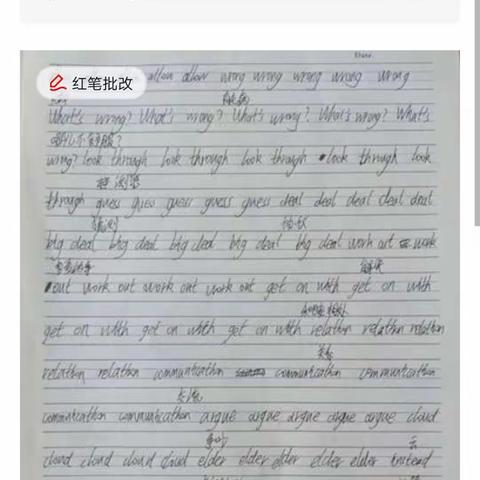 红笔批改
allow allow wrong wrong wrong wrong wrong
What's wrong? What's wrong? What's wrong? What's wrong? What's
哪儿不舒服?
wrong? look through look through look through look through look
through guess guess guess guess guess deal deal deal deal deal
猜测 协议
big deal big deal big deal big deal big deal work out work
重要的事 解决
out work out work out work out get on with get on with
get on with get on with get on with relation relation relation
关系
relation relation communication communication communication
交流
communication communication argue argue argue argue argue cloud
争吵 云
cloud cloud cloud cloud elder elder elder elder elder instead